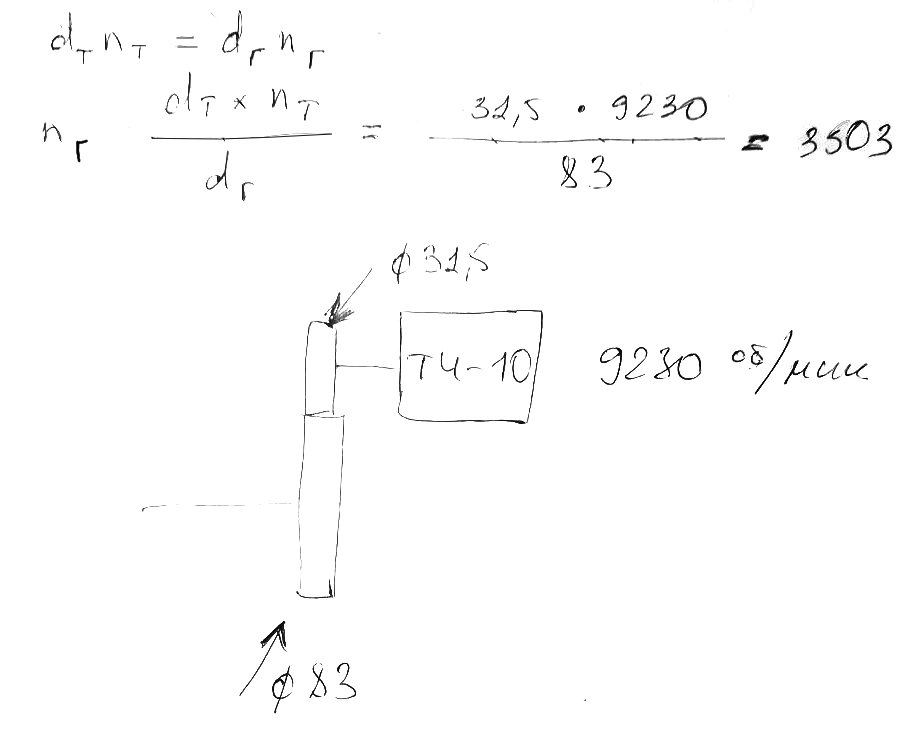 dт nт = dг nг
nг dт × nт / dг = 31,5 · 9230 / 83 = 3503
ϕ 31,5
ТЧ-10 9230 об/мин
ϕ 83